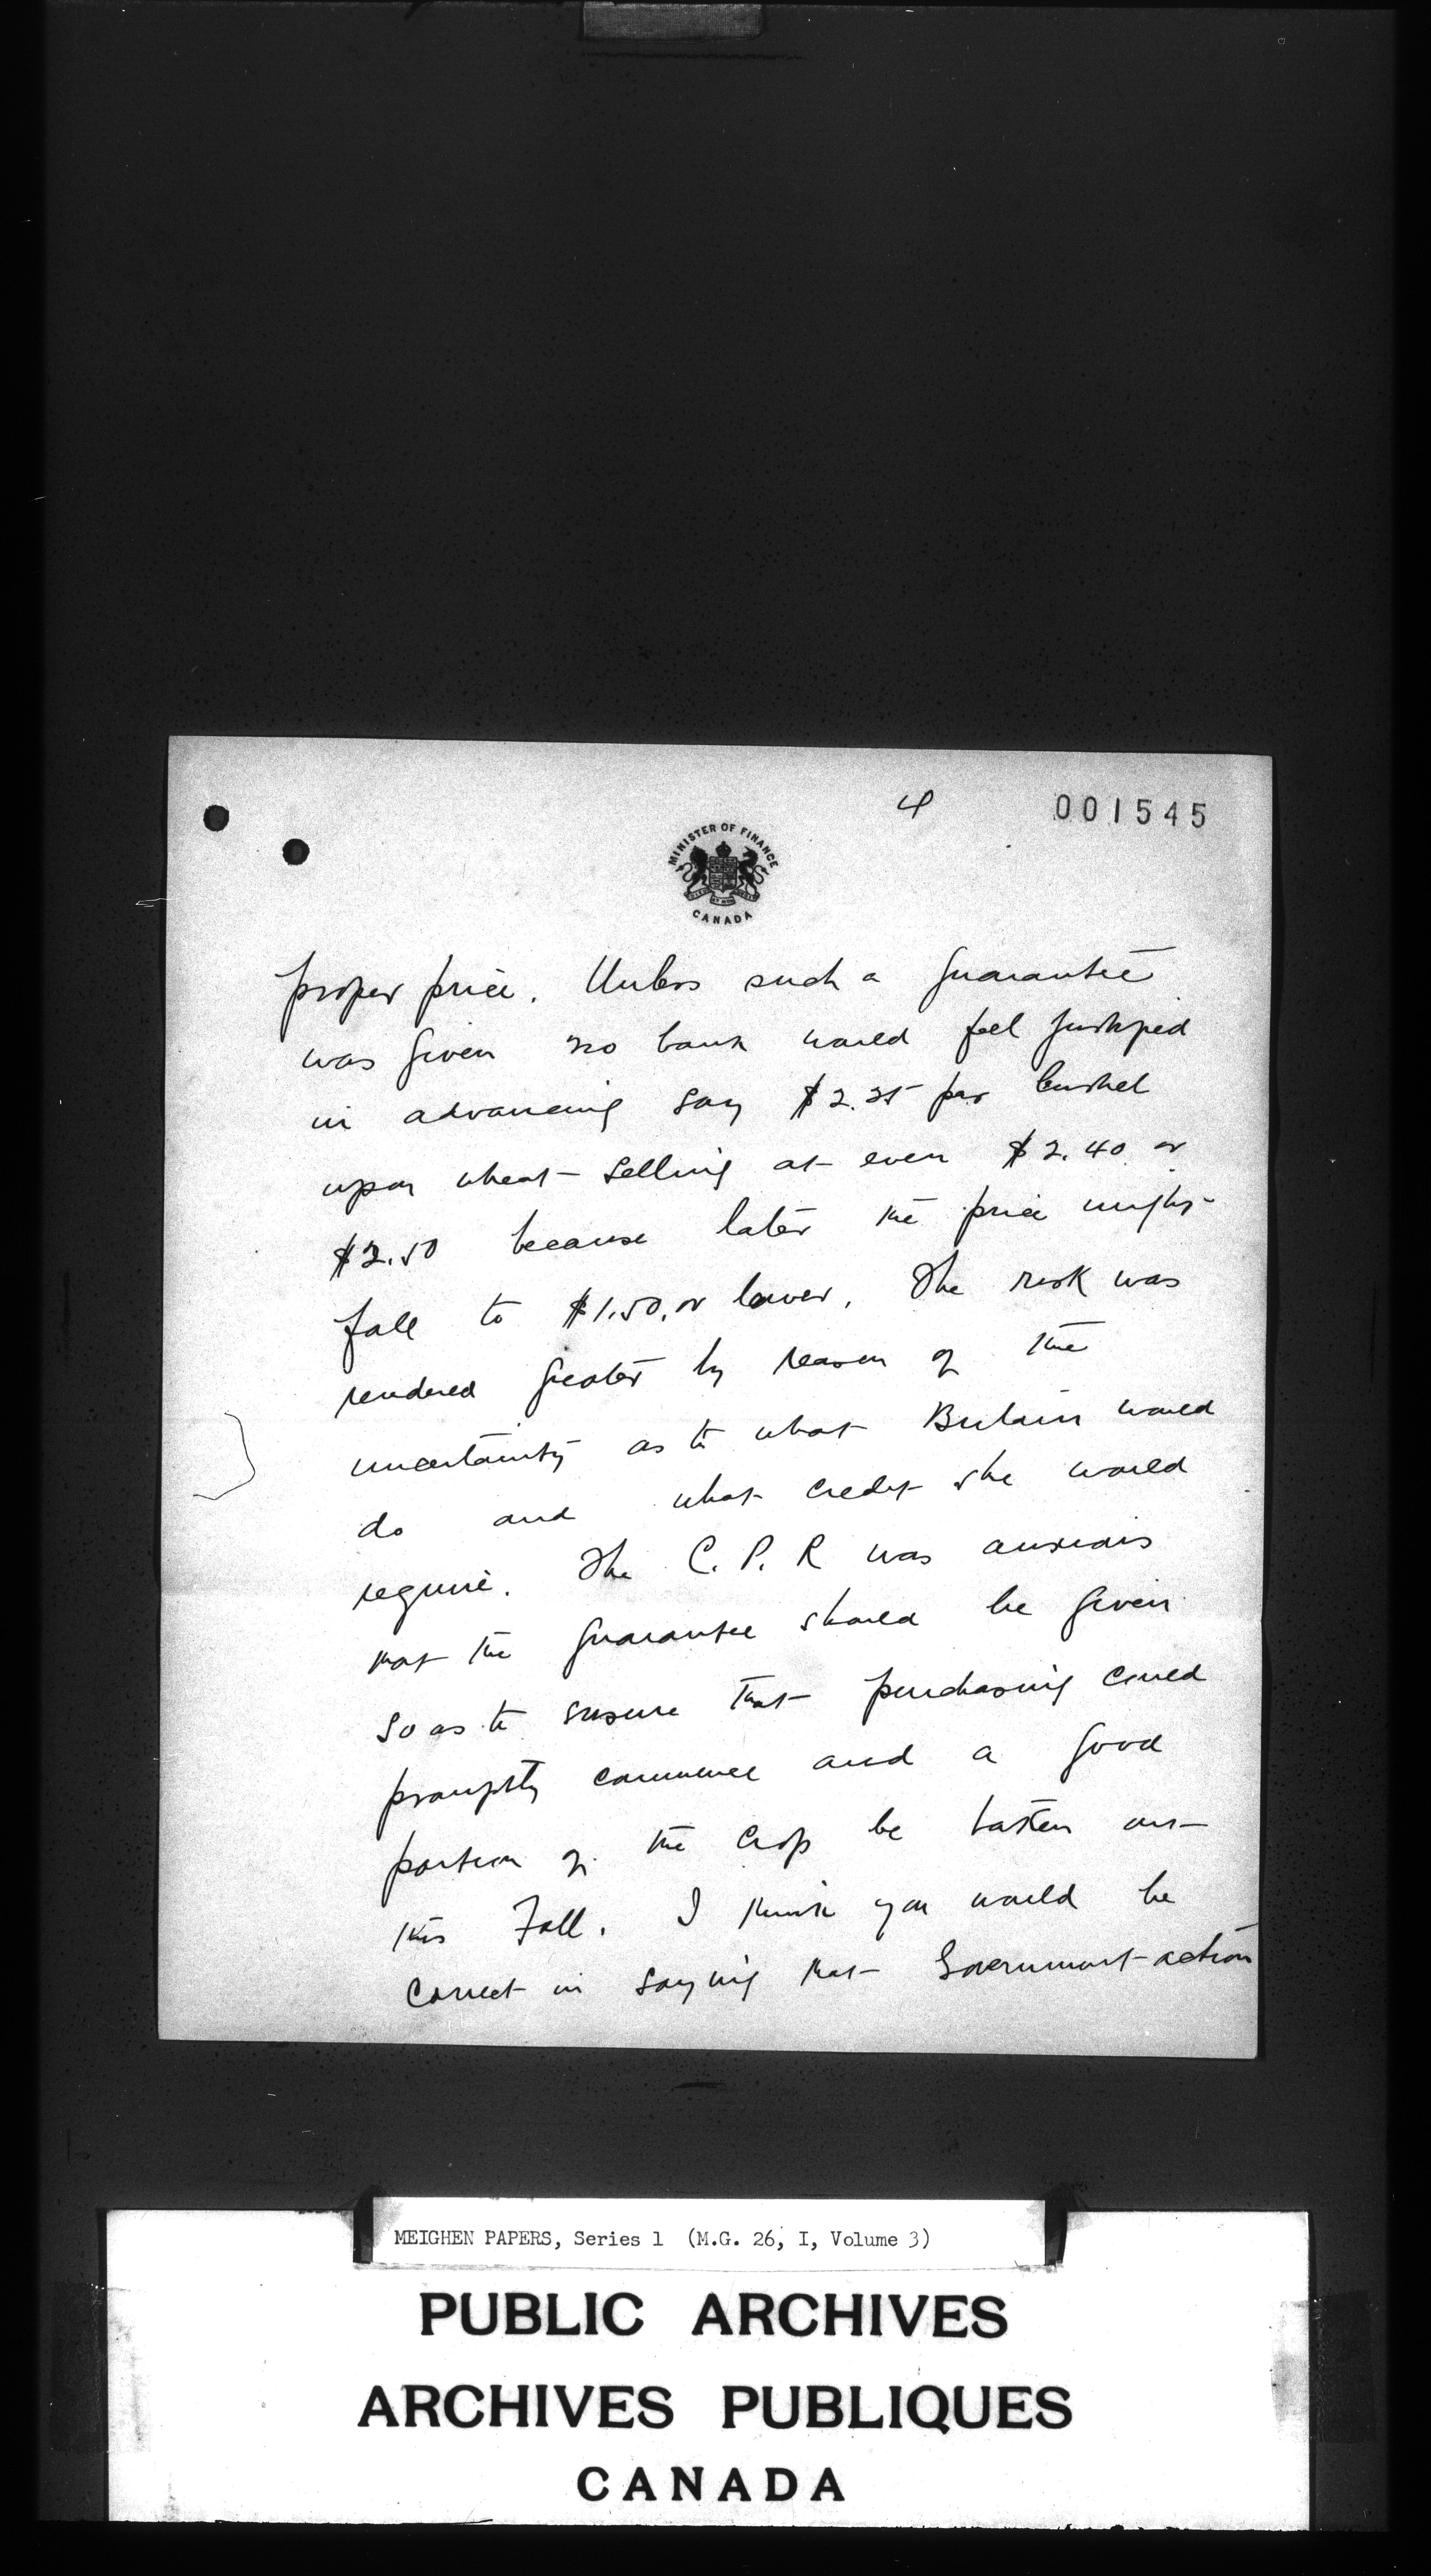 4
001545
MINISTER OF FINANCE
CANADA
proper price. Unless such a guarantee
was given no bank would feel justified
in advancing say $2.25 per bushel
upon wheat selling at even $2.40 or
$2.50 because later the price might
fall to $1.50, or lower. The risk was
rendered greater by reason of the
uncertainty as to what Britain would
do and what credit she would
require. The C. P. R was anxious
that the guarantee should be given
so as to ensure that purchasing could
promptly commence and a good
portion of the crop be taken out
this Fall. I think you would be
correct in saying that Government action
MEIGHEN PAPERS, Series 1 (M.G. 26, I, Volume 3)
PUBLIC ARCHIVES
ARCHIVES PUBLIQUES
CANADA